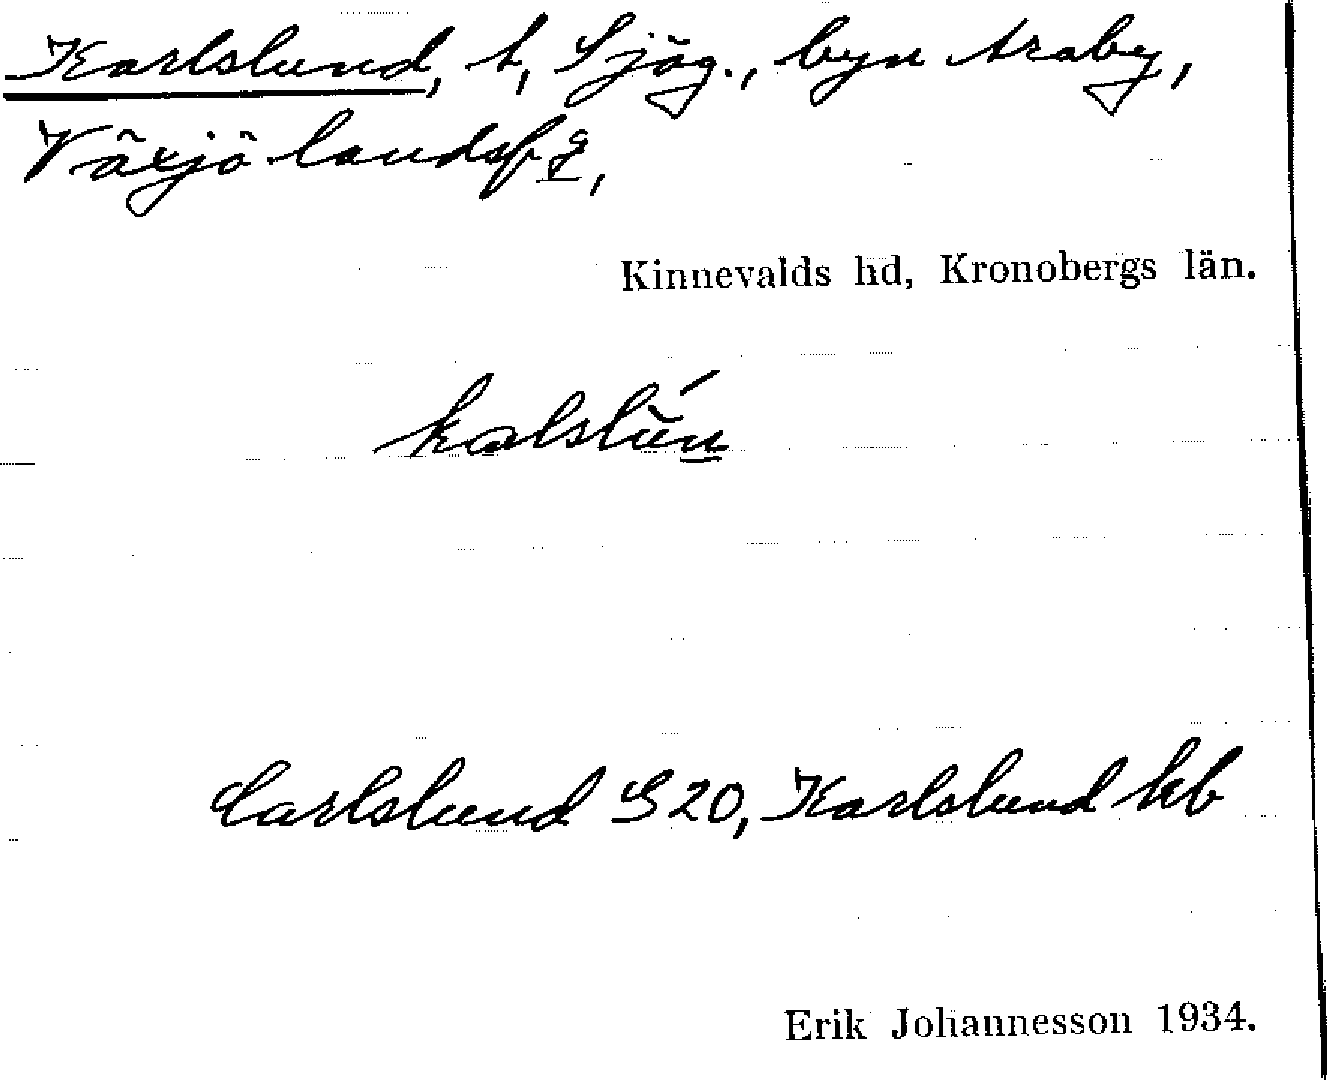 Karlslund, t, Sjög., byn Araby,
Växjö landsf g,
Kinnevalds hd, Kronobergs län.
kalslún
Carlslund S 20, Karlslund hb
Erik Johannesson 1934.